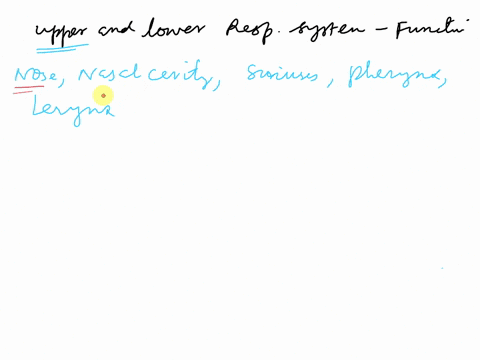 upper and lower Resp. system - Functi
Nose, Nasal cavity, Sinuses, pherynx,
Lerynx